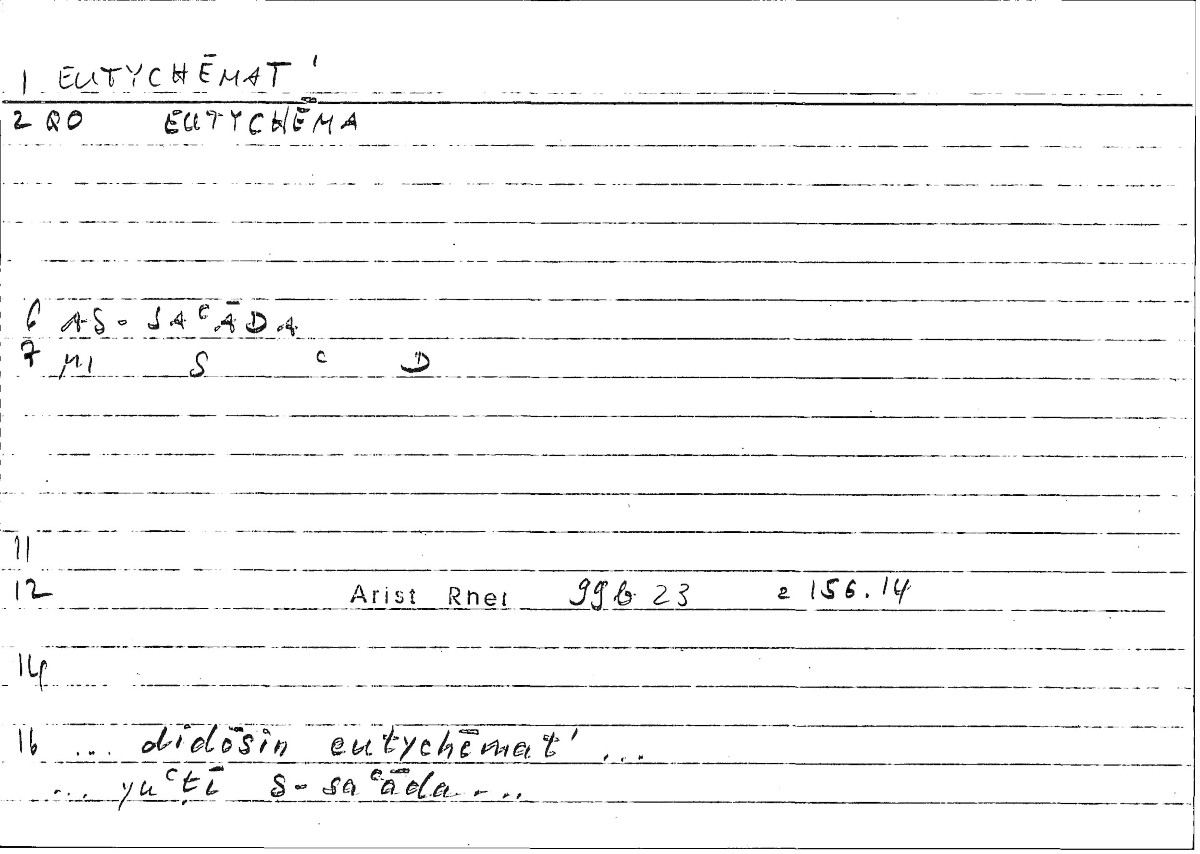 1 EUTYCHĒMAT'
2 QO EUTYCHĒMA
6 AS-SAʿĀDA
7 MI S ʿ D
11
12 Arist Rhet 99b 23 2 156.14
14
16 ... didōsin eutychēmat' ...
... yuʿṭī s-saʿāda ...